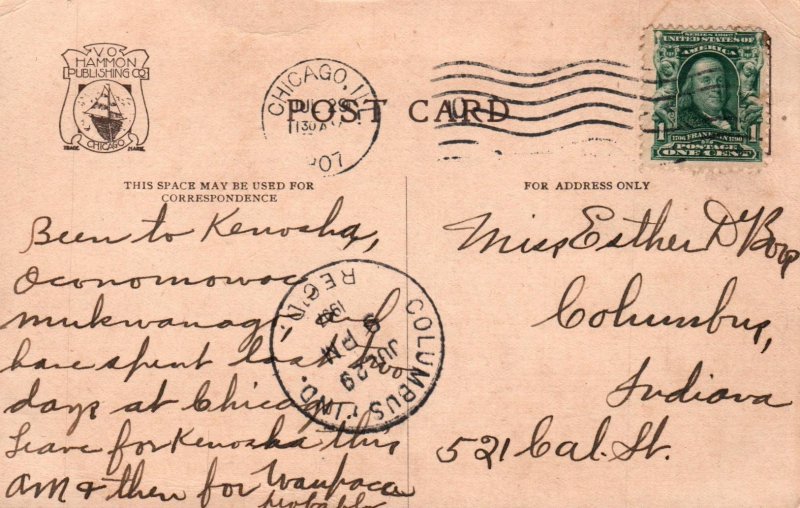 V.O.
HAMMON
PUBLISHING CO
CHICAGO
TRADE MARK
CHICAGO, ILL.
JUL 29
1907
POST CARD
SERIES 1902
UNITED STATES OF
AMERICA
1706 FRANKLIN 1790
1 POSTAGE 1
ONE CENT
THIS SPACE MAY BE USED FOR
CORRESPONDENCE
FOR ADDRESS ONLY
Been to Kenosha,
Oconomowoc
Mukwanago and
have spent last
days at Chicago
Leave for Kenosha this
AM & then for Waupaca
probably
COLUMBUS, IND.
REC'D.
1907
9 PM
JUL 29
Miss Esther
Columbus,
Indiana
521 Cal. St.